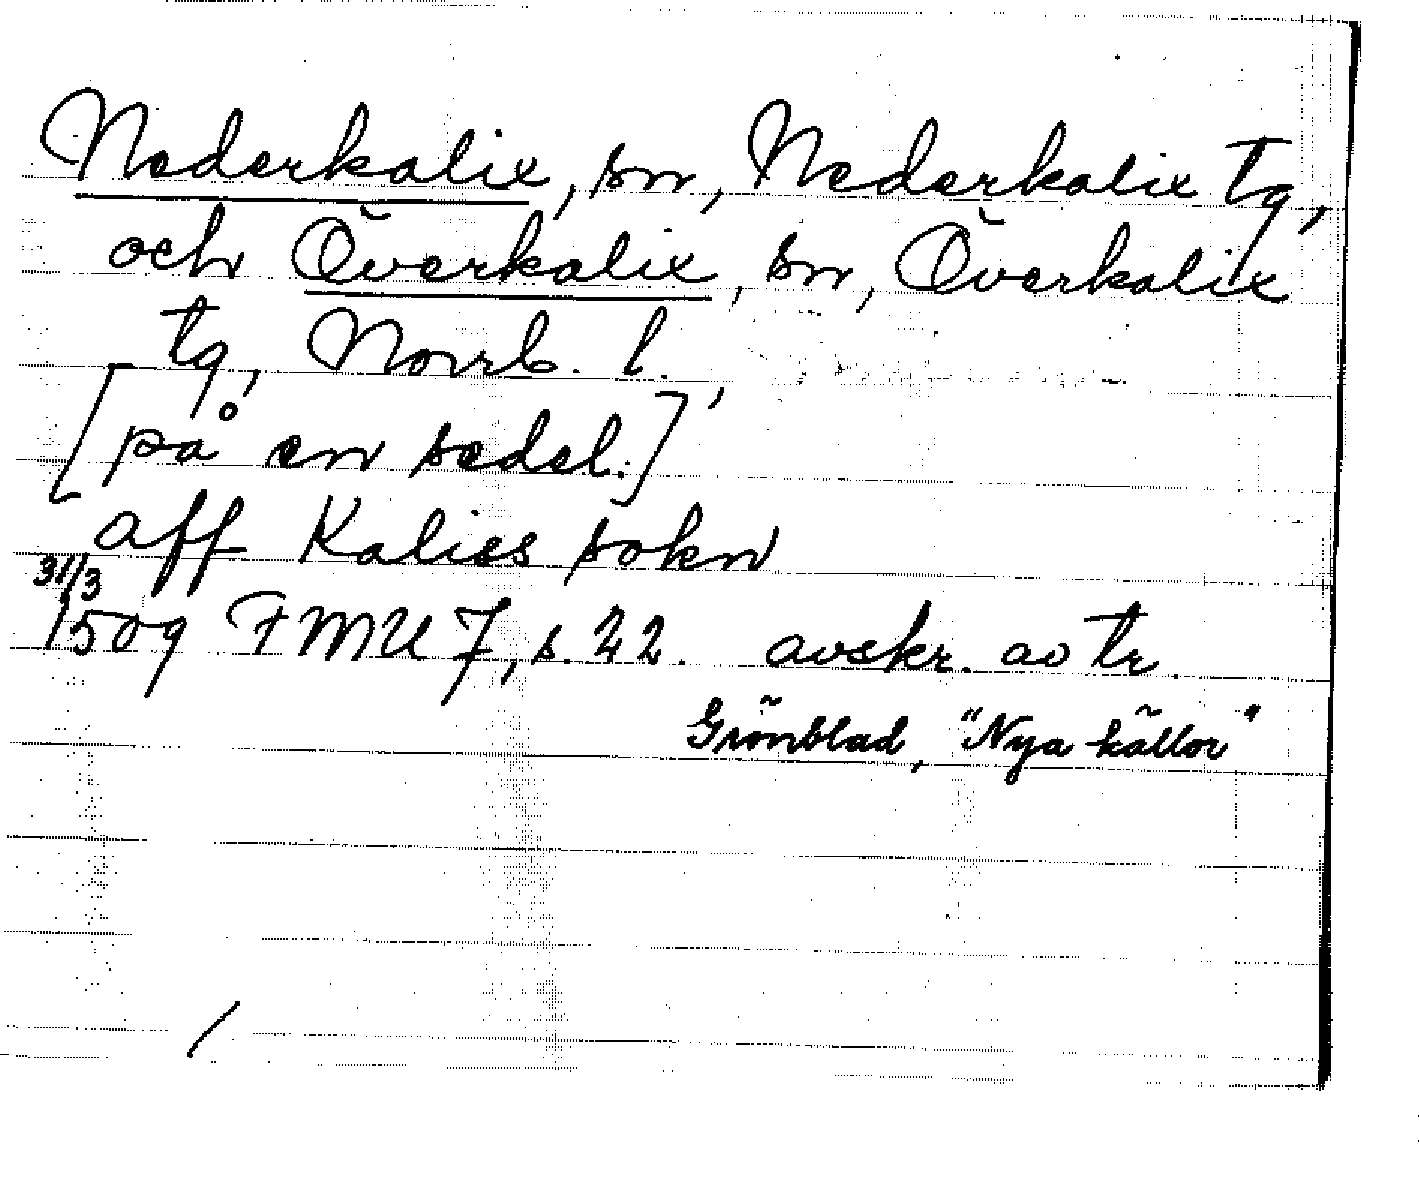 Nederkalix, sn, Nederkalix tg,
och Överkalix, sn, Överkalix
tg, Norrb. l.,
[på en sedel.]
aff Kalics sokn
31/3
1509 FMU 7, s. 22. avskr. av tr.
Grönblad, "Nya källor"